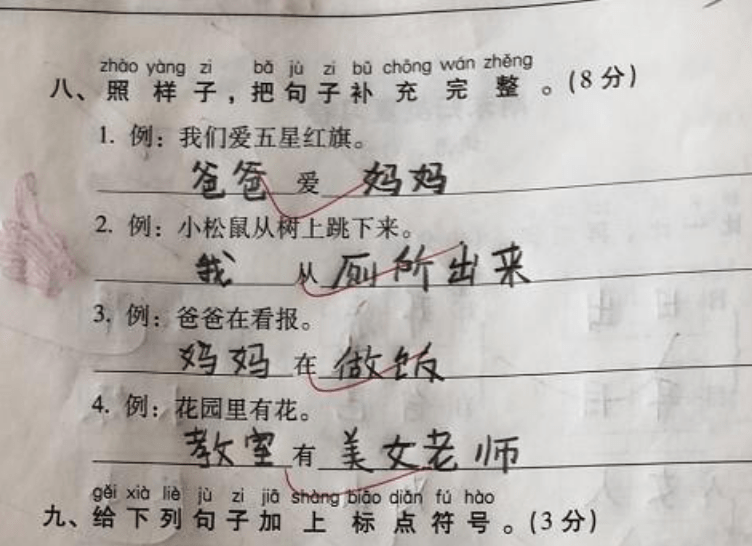 zhào yàng zi bǎ jù zi bǔ chōng wán zhěng
八、照样子，把句子补充完整。(8分)
1. 例：我们爱五星红旗。
爸爸爱妈妈
2. 例：小松鼠从树上跳下来。
我从厕所出来
3. 例：爸爸在看报。
妈妈在做饭
4. 例：花园里有花。
教室有美女老师
gěi xià liè jù zi jiā shàng biāo diǎn fú hào
九、给下列句子加上标点符号。(3分)